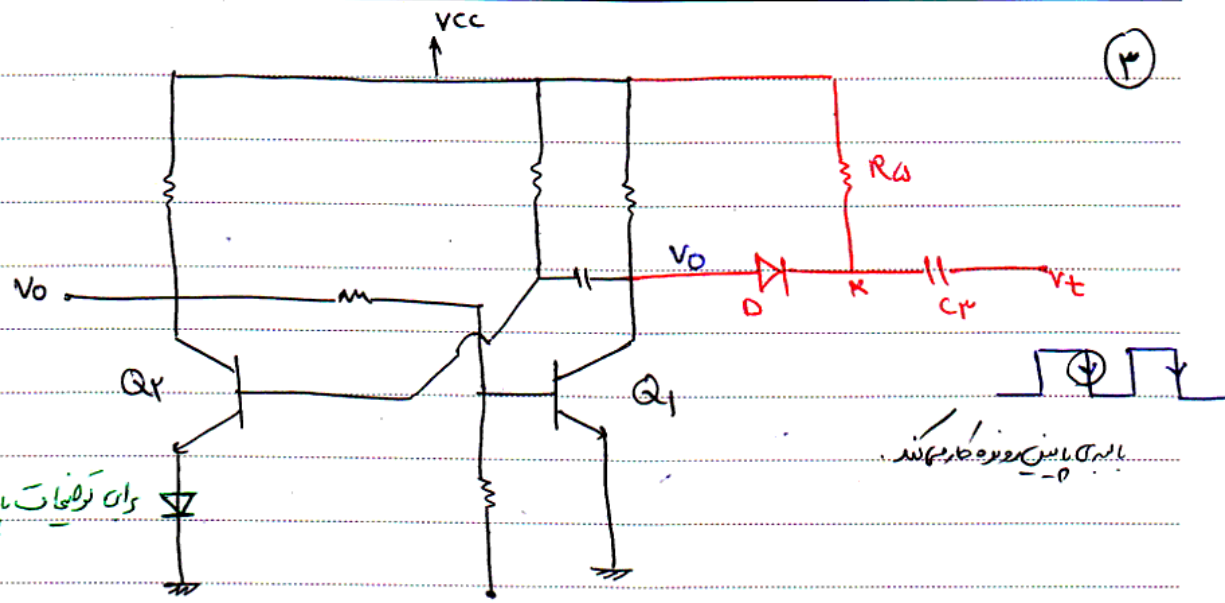 VCC
۳
R۵
Vo
D
K
C۳
Vt
Vo
Q۲
Q۱
با لبه‌ی پایین رونده کار می‌کند.
برای توضیحات